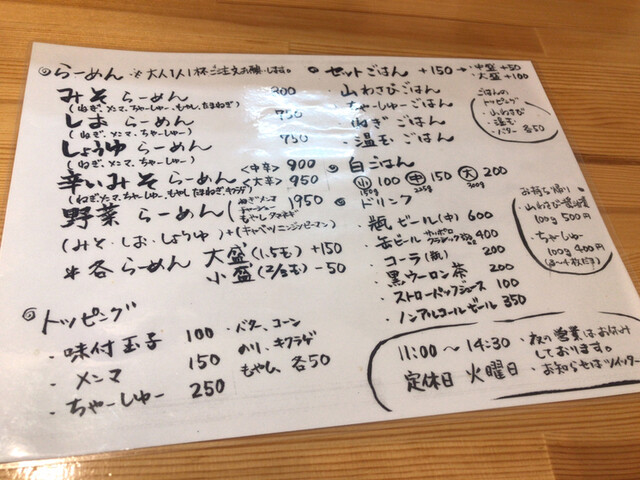 らーめん ※大人1人1杯ご注文お願いします。
みそらーめん
(ねぎ、メンマ、ちゃーしゅー、もやし、たまねぎ)
しおらーめん 750
(ねぎ、メンマ、ちゃーしゅー)
しょうゆらーめん 750
(ねぎ、メンマ、ちゃーしゅー)
辛いみそらーめん <中辛> 900
<大辛> 950
(ねぎ、メンマ、ちゃーしゅー、もやし、たまねぎ、キクラゲ)
野菜らーめん (ねぎ メンマ ちゃーしゅー もやし タマネギ 1950
(みそ・しお・しょうゆ)+(キャベツ ニンジン ピーマン)
*各らーめん 大盛(1.5玉) +150
小盛(2/3玉) -50
トッピング
・味付玉子 100
・メンマ 150
・ちゃーしゅー 250
・バター、コーン
のり、キクラゲ
もやし、各50
セットごはん +150→・中盛+50
・大盛+100
・山わさびごはん
・ちゃーしゅーごはん
・ねぎごはん
・温玉ごはん
ごはんの
トッピング
・山わさび
・温玉
・バター 各50
白ごはん
小 100 中 150 大 200
150g 225g 300g
ドリンク
・瓶ビール(中) 600
・缶ビール サッポロクラシック 400
・コーラ(瓶) 200
・黒ウーロン茶 200
・ストローパップジュース 100
・ノンアルコールビール 350
お持ち帰り
・山わさび
100g 500円
・ちゃーしゅー
100g 400円
11:00〜14:30
定休日 火曜日
・夜の営業はお休み
しております。
・お知らせはツイッター